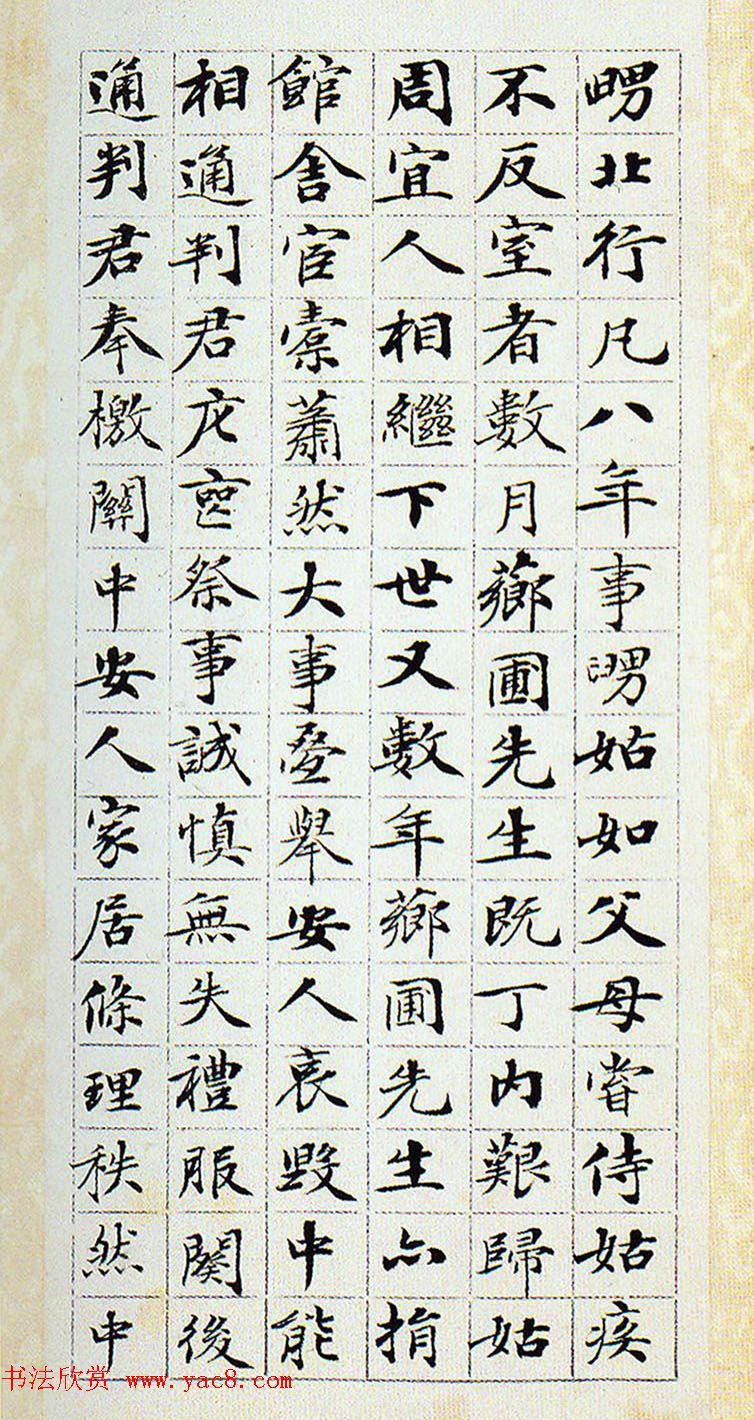 舅北行凡八年事舅姑如父母嘗侍姑疾
不反室者數月薌圃先生既丁內艱歸姑
周宜人相繼下世又數年薌圃先生亦捐
館舍宦橐蕭然大事疊舉安人哀毀中能
相通判君庀喪祭事誠慎無失禮服闋後
通判君奉檄關中安人家居條理秩然中
书法欣赏 www.yac8.com